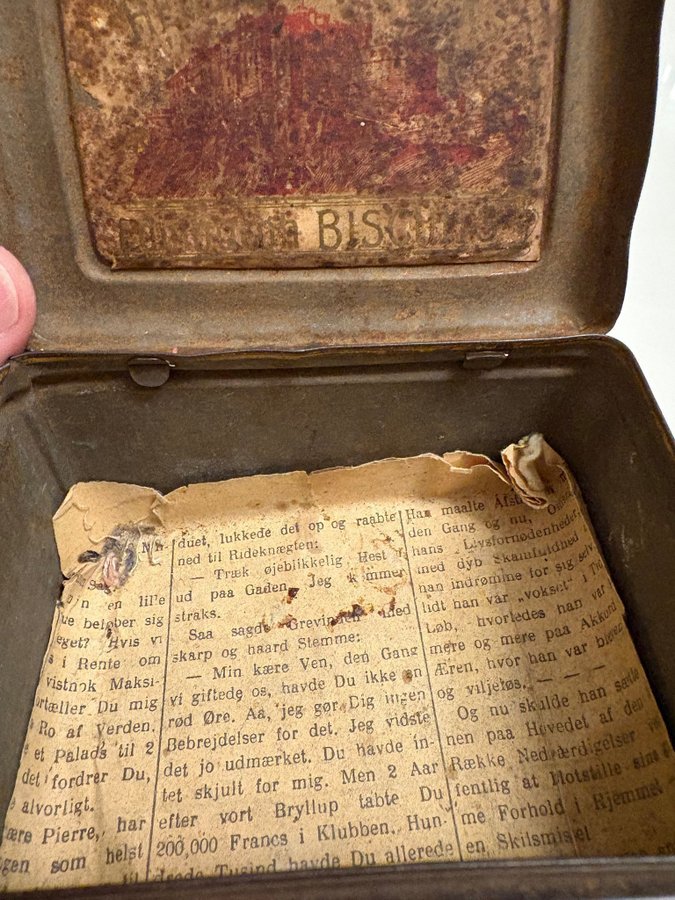 BISCUITS
en lille
ue beløber sig
eget? Hvis vi
s i Rente om
vistnok Maksi-
ortæller Du mig
Ro af Verden.
et Palads til 2
det fordrer Du,
alvorligt.
ære Pierre, har
gen som helst
til
duet, lukkede det op og raabte
ned til Rideknægten:
— Træk øjeblikkelig Hest
ud paa Gaden. Jeg kommer
straks.
Saa sagde Grevinden med
skarp og haard Stemme:
— Min kære Ven, den Gang
vi giftede os, havde Du ikke en
rød Øre. Aa, jeg gør Dig ingen
Bebrejdelser for det. Jeg vidste
det jo udmærket. Du havde in-
tet skjult for mig. Men 2 Aar
efter vort Bryllup tabte Du
200,000 Francs i Klubben. Hun-
drede Tusind havde Du allerede
Han maalte
den Gang og nu,
hans Livsfornødenheder,
med dyb Skamfuldhed
han indrømme for sig selv,
lidt han var „vokset“ i
Løb, hvorledes han var
mere og mere paa Akkord
Æren, hvor han var bleven
og viljeløs. — — —
Og nu skulde han sætte
nen paa Hovedet af den
Række Nedværdigelser
fentlig at Motstille sine
me Forhold i Hjemmet
en Skilsmisse!